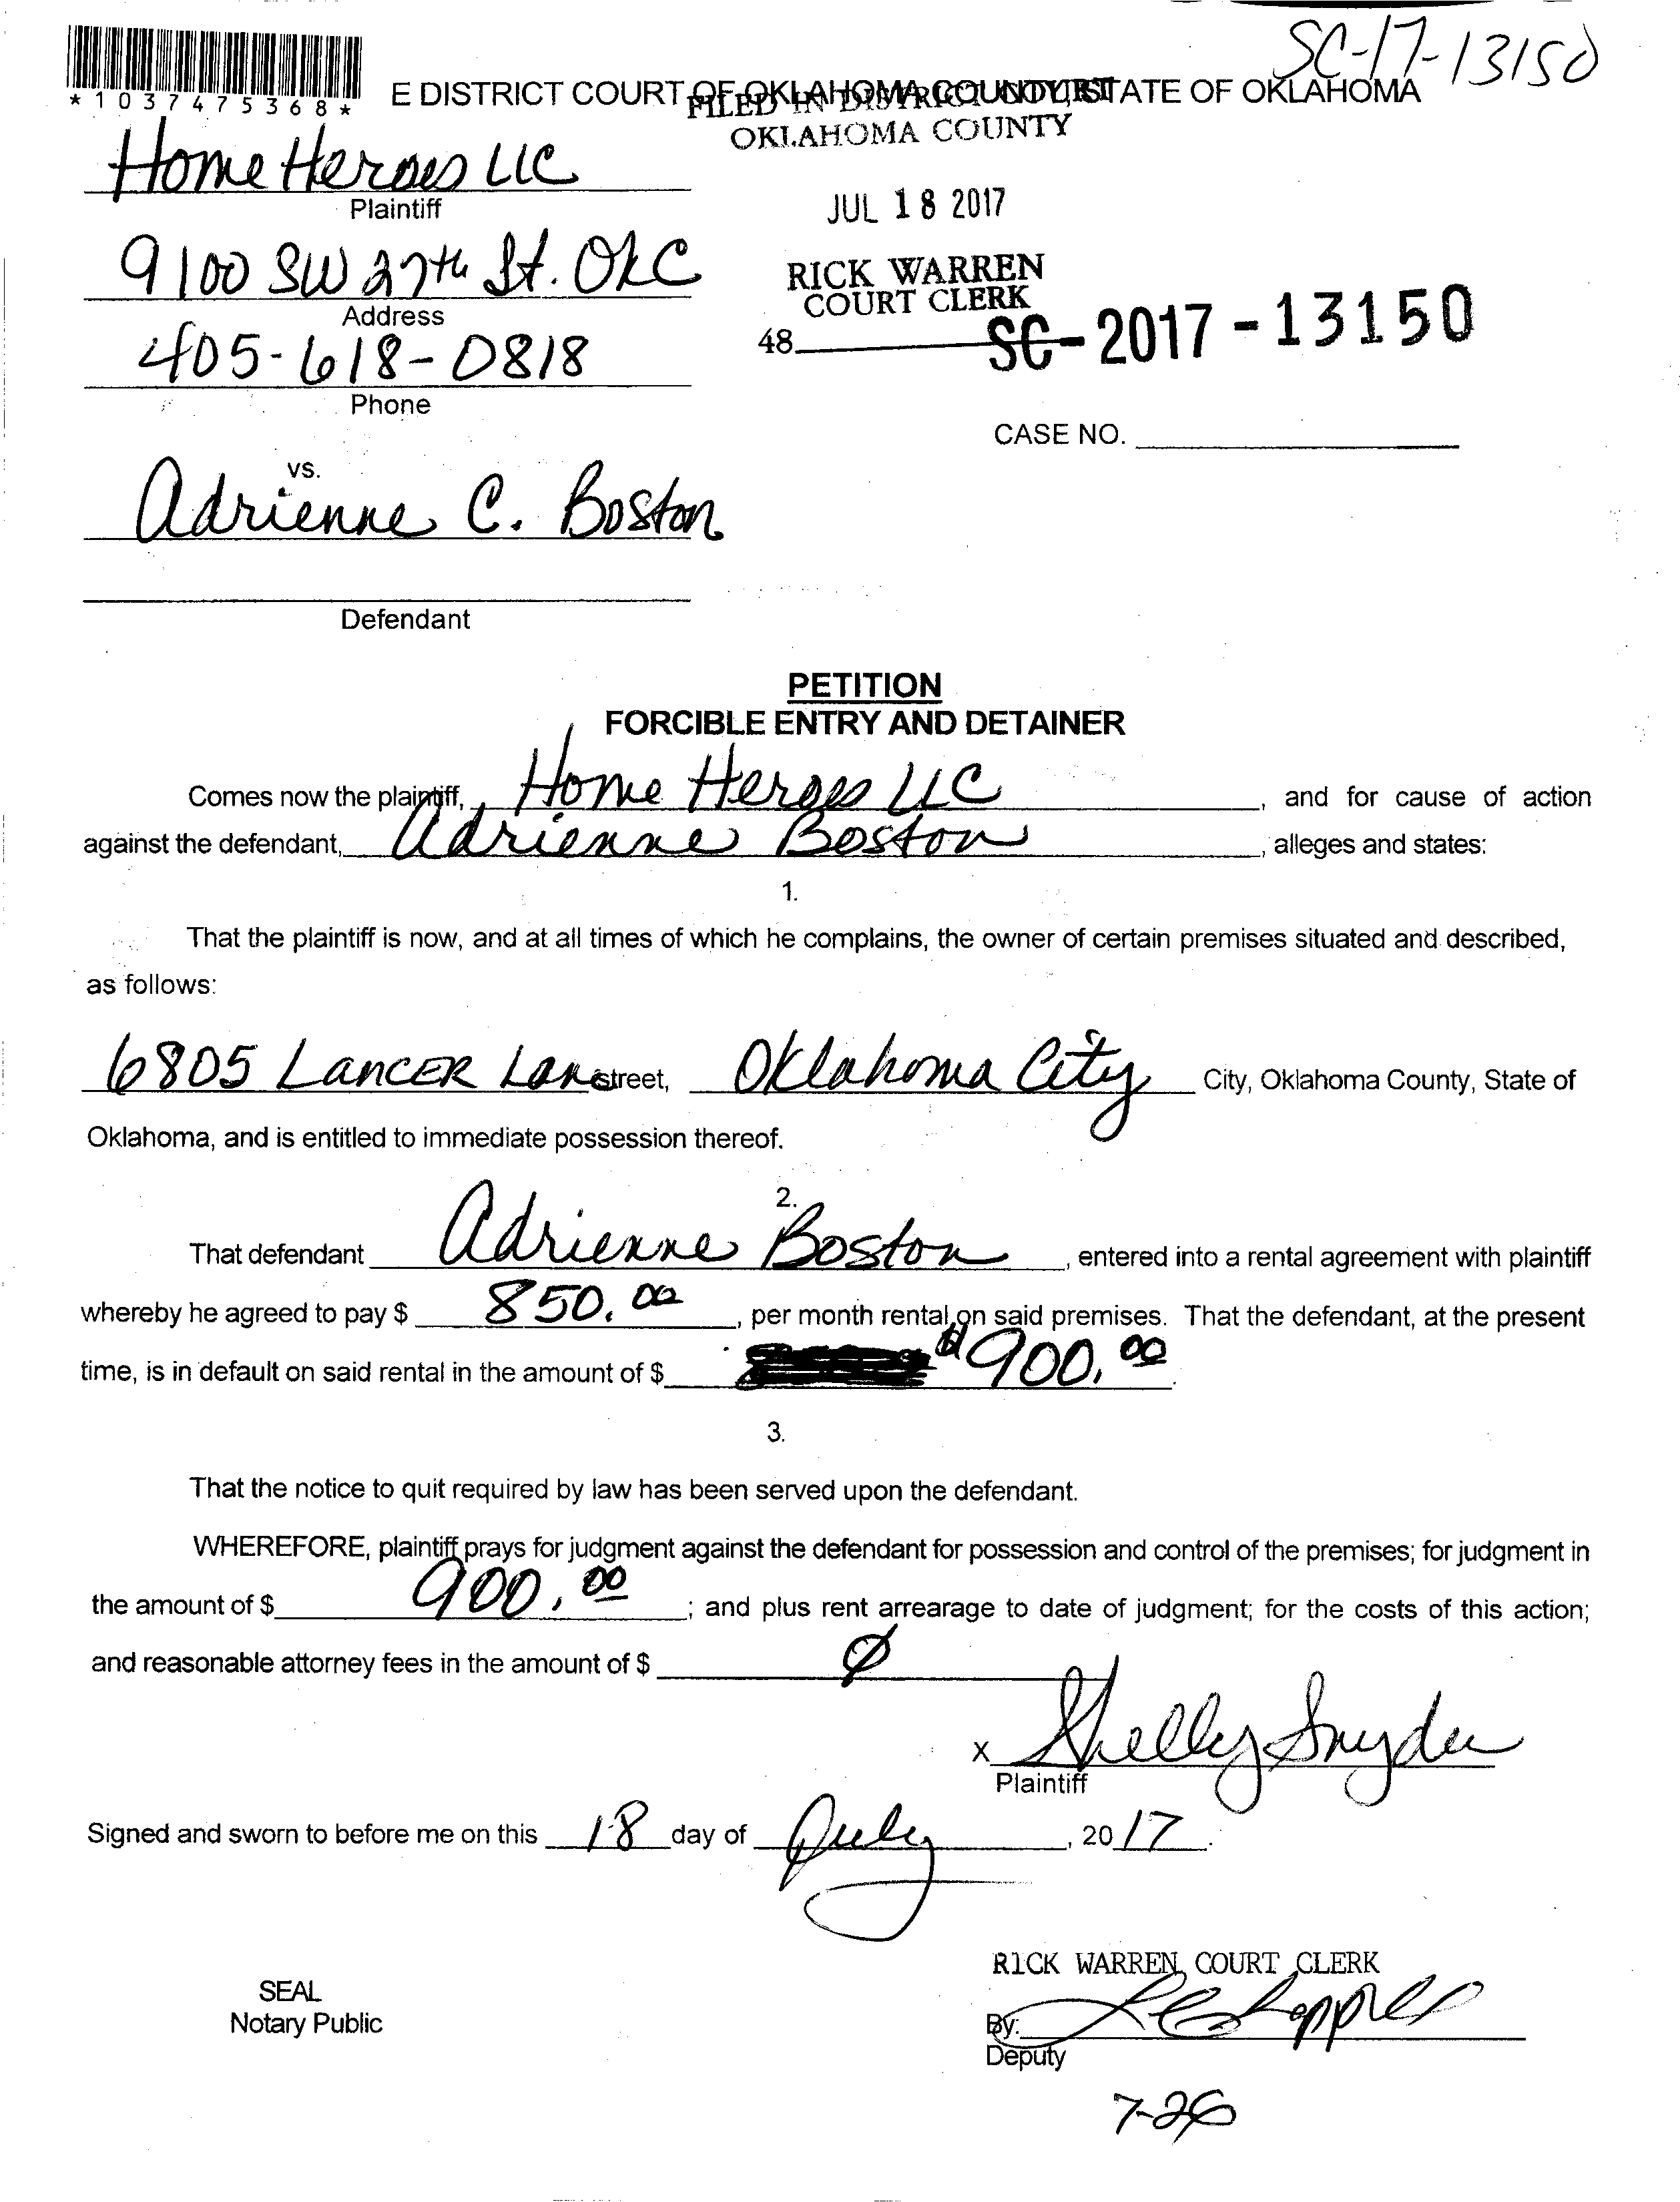 SC-17-13150
*1037475368*
E DISTRICT COURT OF OKLAHOMA COUNTY, STATE OF OKLAHOMA
FILED IN DISTRICT COURT
OKLAHOMA COUNTY
Home Heroes LLC
Plaintiff
JUL 18 2017
9100 SW 27th St. OKC
Address
RICK WARREN
COURT CLERK
405-618-0818
Phone
48
SC-2017-13150
CASE NO.
vs.
Adrienne C. Boston
Defendant
PETITION
FORCIBLE ENTRY AND DETAINER
Comes now the plaintiff, Home Heroes LLC, and for cause of action
against the defendant, Adrienne Boston, alleges and states:
1.
That the plaintiff is now, and at all times of which he complains, the owner of certain premises situated and described,
as follows:
6805 Lancer Lane street, Oklahoma City City, Oklahoma County, State of
Oklahoma, and is entitled to immediate possession thereof.
2.
That defendant Adrienne Boston, entered into a rental agreement with plaintiff
whereby he agreed to pay $ 850.00, per month rental on said premises. That the defendant, at the present
time, is in default on said rental in the amount of $ $900.00.
3.
That the notice to quit required by law has been served upon the defendant.
WHEREFORE, plaintiff prays for judgment against the defendant for possession and control of the premises; for judgment in
the amount of $ 900.00; and plus rent arrearage to date of judgment; for the costs of this action;
and reasonable attorney fees in the amount of $ Ø
X Shelly Snyder
Plaintiff
Signed and sworn to before me on this 18 day of July, 2017.
RICK WARREN, COURT CLERK
SEAL
Notary Public
By:
Deputy
7-26